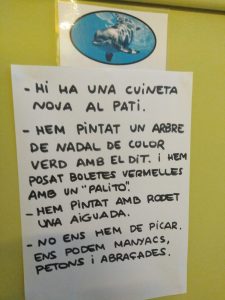 - HI HA UNA CUINETA
NOVA AL PATI.
- HEM PINTAT UN ARBRE
DE NADAL DE COLOR
VERD AMB EL DIT. I HEM
POSAT BOLETES VERMELLES
AMB UN "PALITO".
- HEM PINTAT AMB RODET
UNA AIGUADA.
- NO ENS HEM DE PICAR.
ENS PODEM MANYACS,
PETONS I ABRAÇADES.